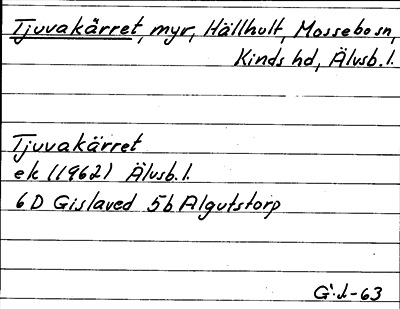 Tjuvakärret, myr, Hällhult, Mossebo sn,
Kinds hd, Älvsb. l.
Tjuvakärret
ek (1962) Älvsb. l.
6D Gislaved 5b Algutstorp
G:l-63